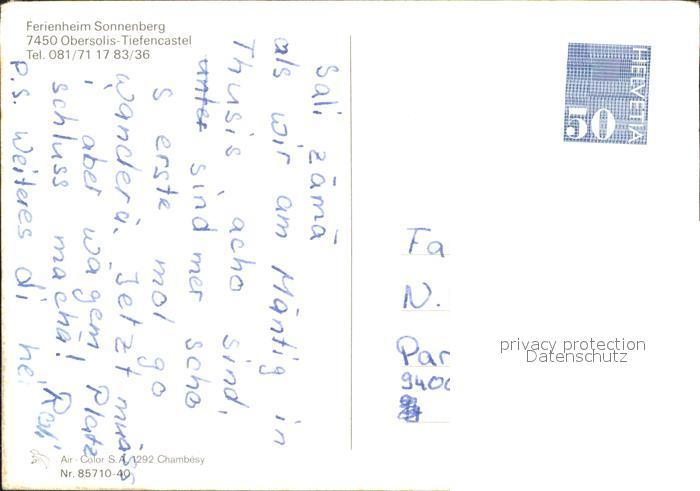 Ferienheim Sonnenberg
7450 Obersolis-Tiefencastel
Tel. 081/71 17 83/36
Sali zämä
als wir am Mäntig in
Thusis acho sind,
sind mer scho
s erste mol go
wanderä. Jetzt muäss
i aber wägem Platz
schluss machä! Roli
P.S. Weiteres di hei
Air-Color S.A. 1292 Chambésy
Nr. 85710-40
HELVETIA
50
Fa
N.
Par
9400
privacy protection
Datenschutz